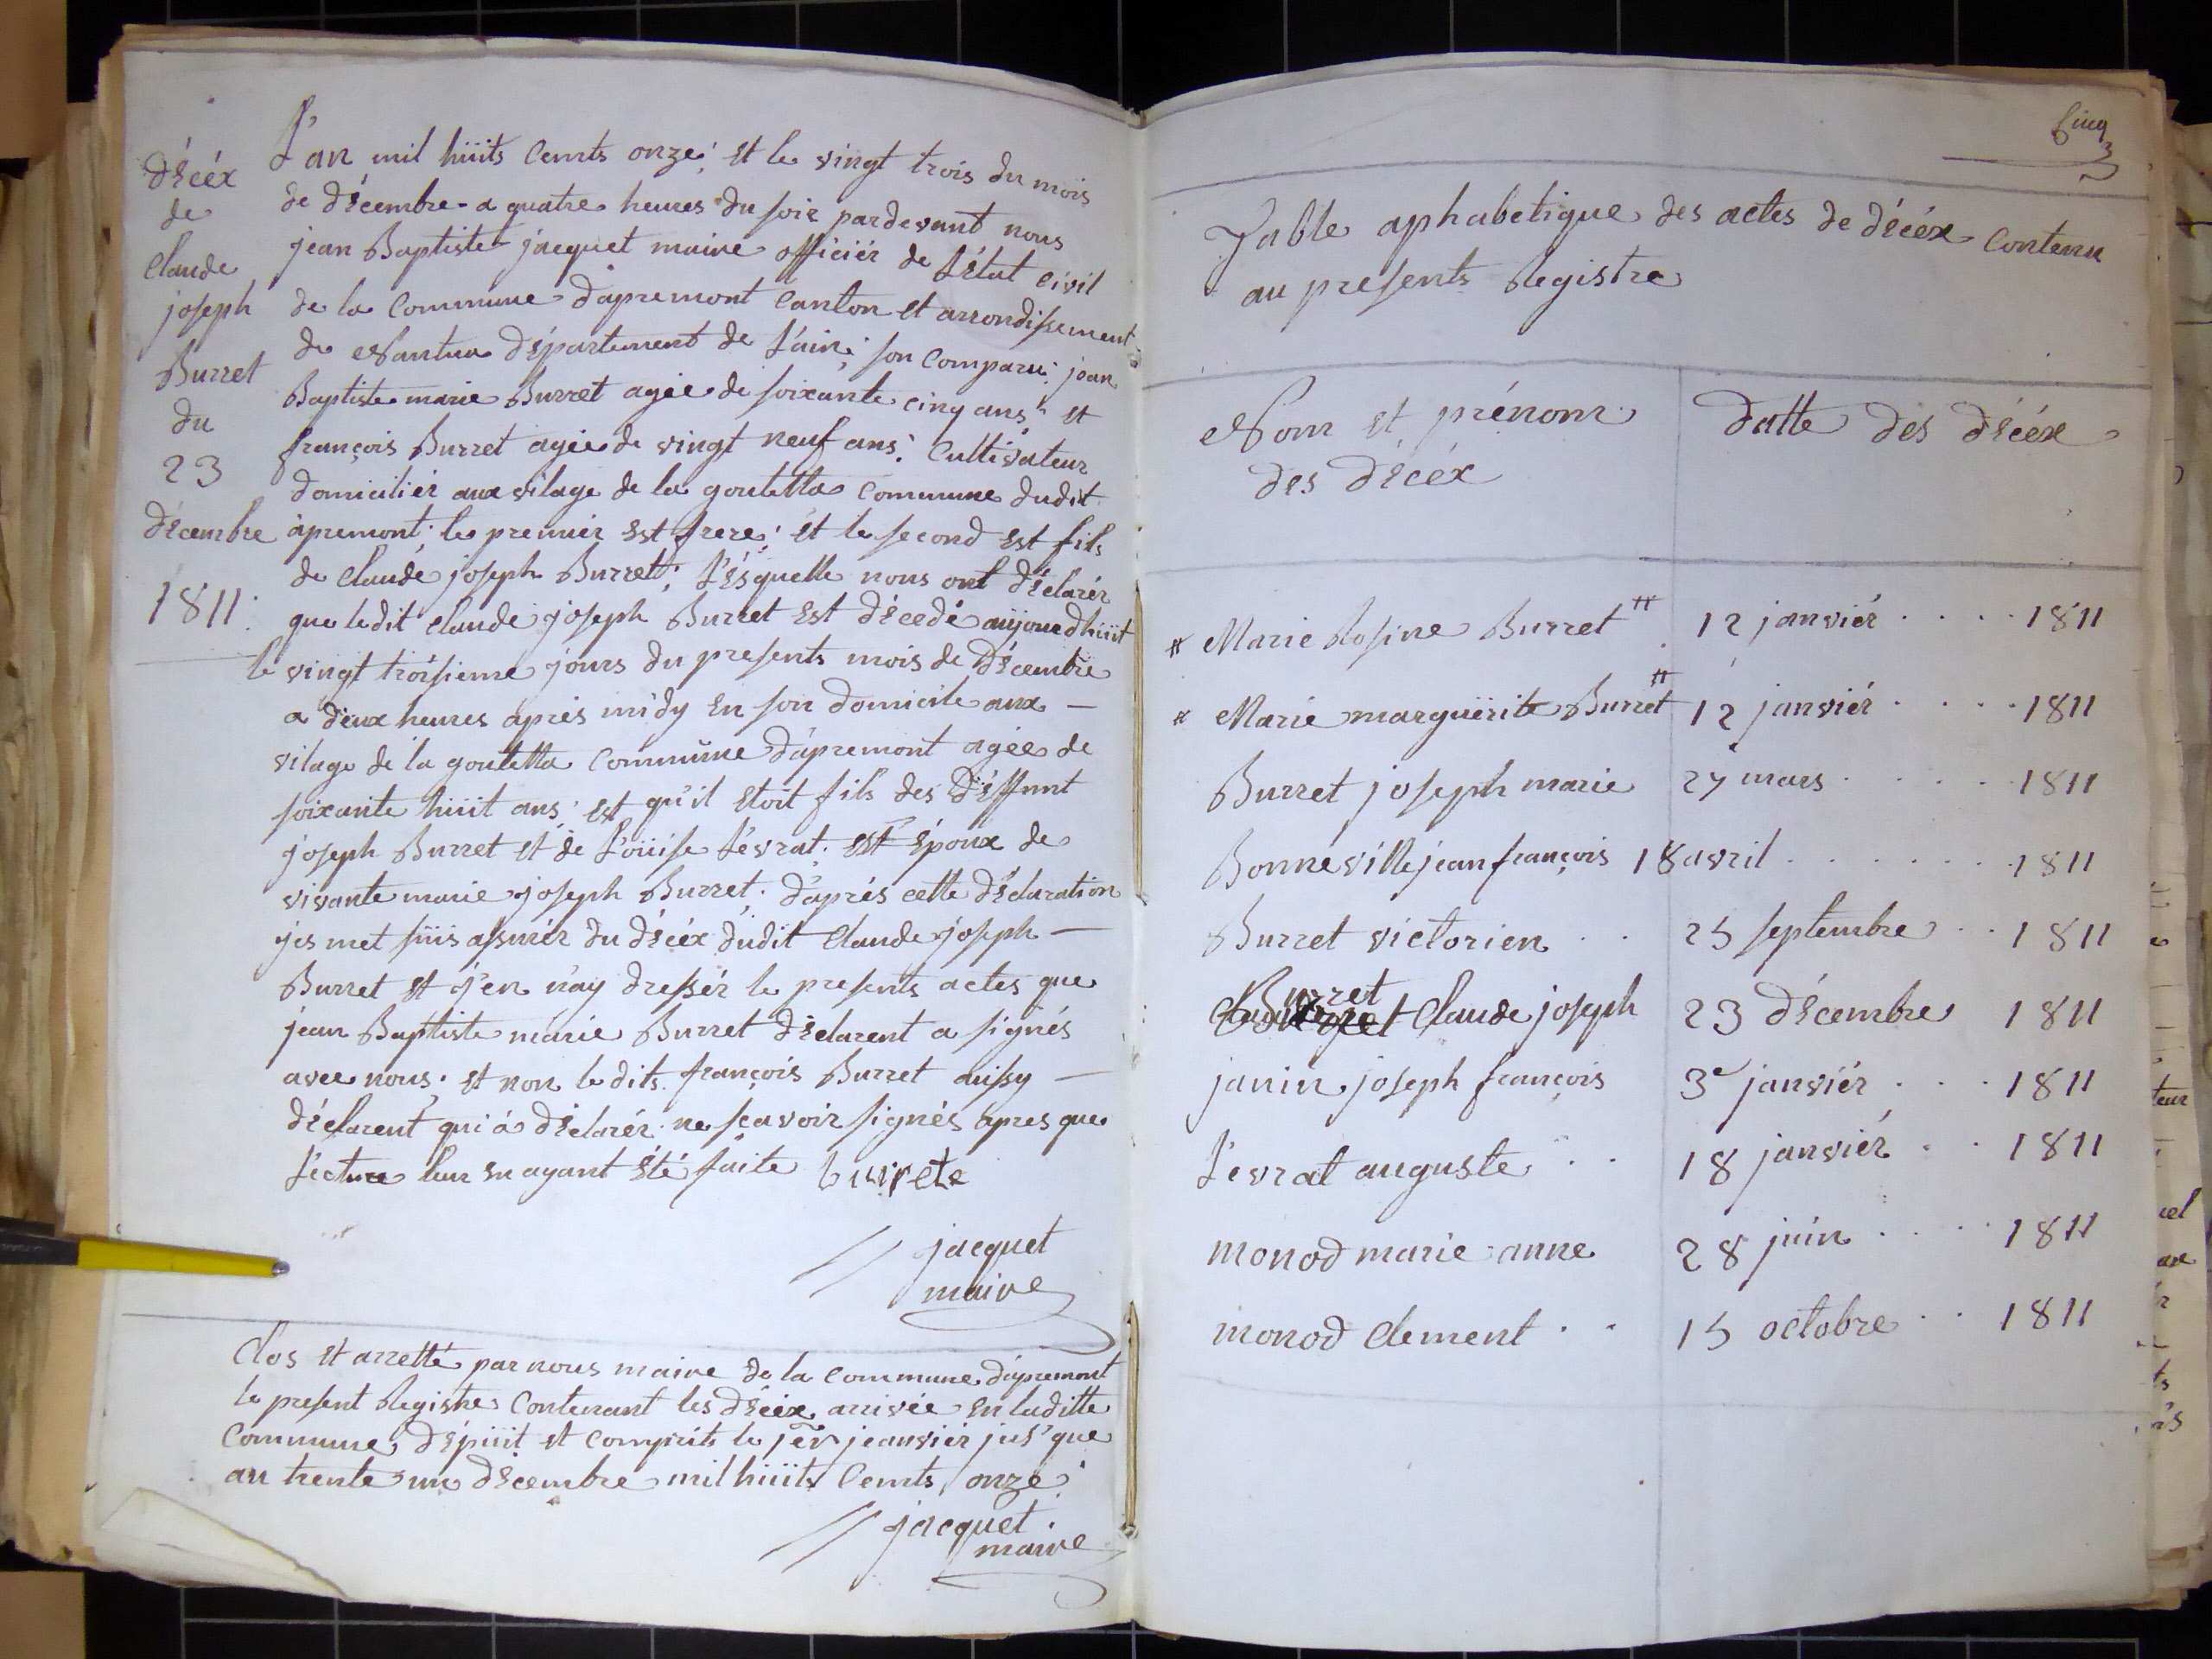 décéx
de
Claude
joseph
Burret
du
23
décembre
1811.
L'an mil hüits Cents onze; et le vingt trois du mois
de décembre a quatre heures du soir pardevant nous
jean Baptiste jacquet maire officiér de L'état Civil
de la Commune d'apremont Canton et arrondissement
de Nantua département de L'ain; son Comparu; jean
Baptiste marie Burret agée de soixante cinq ans; et
françois Burret agée de vingt neuf ans; Cultivateur
domiciliér aux vilage de la goutetta Commune dudit
apremont; le premiér est frere; et le second est fils
de Claude joseph Burret; Lésquelle nous ont déclarér
que ledit Claude joseph Burret est décedé aujourdhüit
le vingt troisieme jours du presents mois de décembre
a deux heures aprés midy en son domicile aux —
vilage de la goutetta Commune dapremont agée de
soixante hüit ans; est qu'il etoit fils des déffunt
joseph Burret et de Loüise Lévrat; est époux de
vivante marie joseph Burret; d'aprés cette déclaration
jes met süis assurér du décéx dudit Claude joseph —
Burret et j'en n'ay dressér le presents actes que
jean Baptiste marie Burret déclarent a signés
avec nous; et non le dits françois Burret aussy —
déclarent qui á déclarér ne sçavoir signés apres que
Lecture leur en ayant été faite burrete
jacquet
maire
Clos et arretté par nous maire de la Commune d'apremont
le present Registre Contenant les décéx arrivée en laditte
Commune dépüit et comprits le 1er jeanviér jus'que
au trente un décembre mil hüits Cents onze
jacquet
maire
Cinq
Table aphabetique des actes de décéx Contenu
au presents Registre
Nom et prénom
des décéx
datte des décéx
# Marie Rosine Burret # 12 janviér . . . . 1811
# Marie marguérite Burret # 12 janviér . . . . 1811
Burret joseph marie 27 mars . . . . . 1811
Bonneville jean françois 18 avril . . . . . . . 1811
Burret victorien . . 25 septembre . . 1811
Burret Claude joseph 23 décembre 1811
janin joseph françois 3e janviér . . . 1811
Lévrat auguste . . 18 janviér . . 1811
monod marie anne 28 juin . . . . 1811
monod clement . . 15 octobre . . 1811